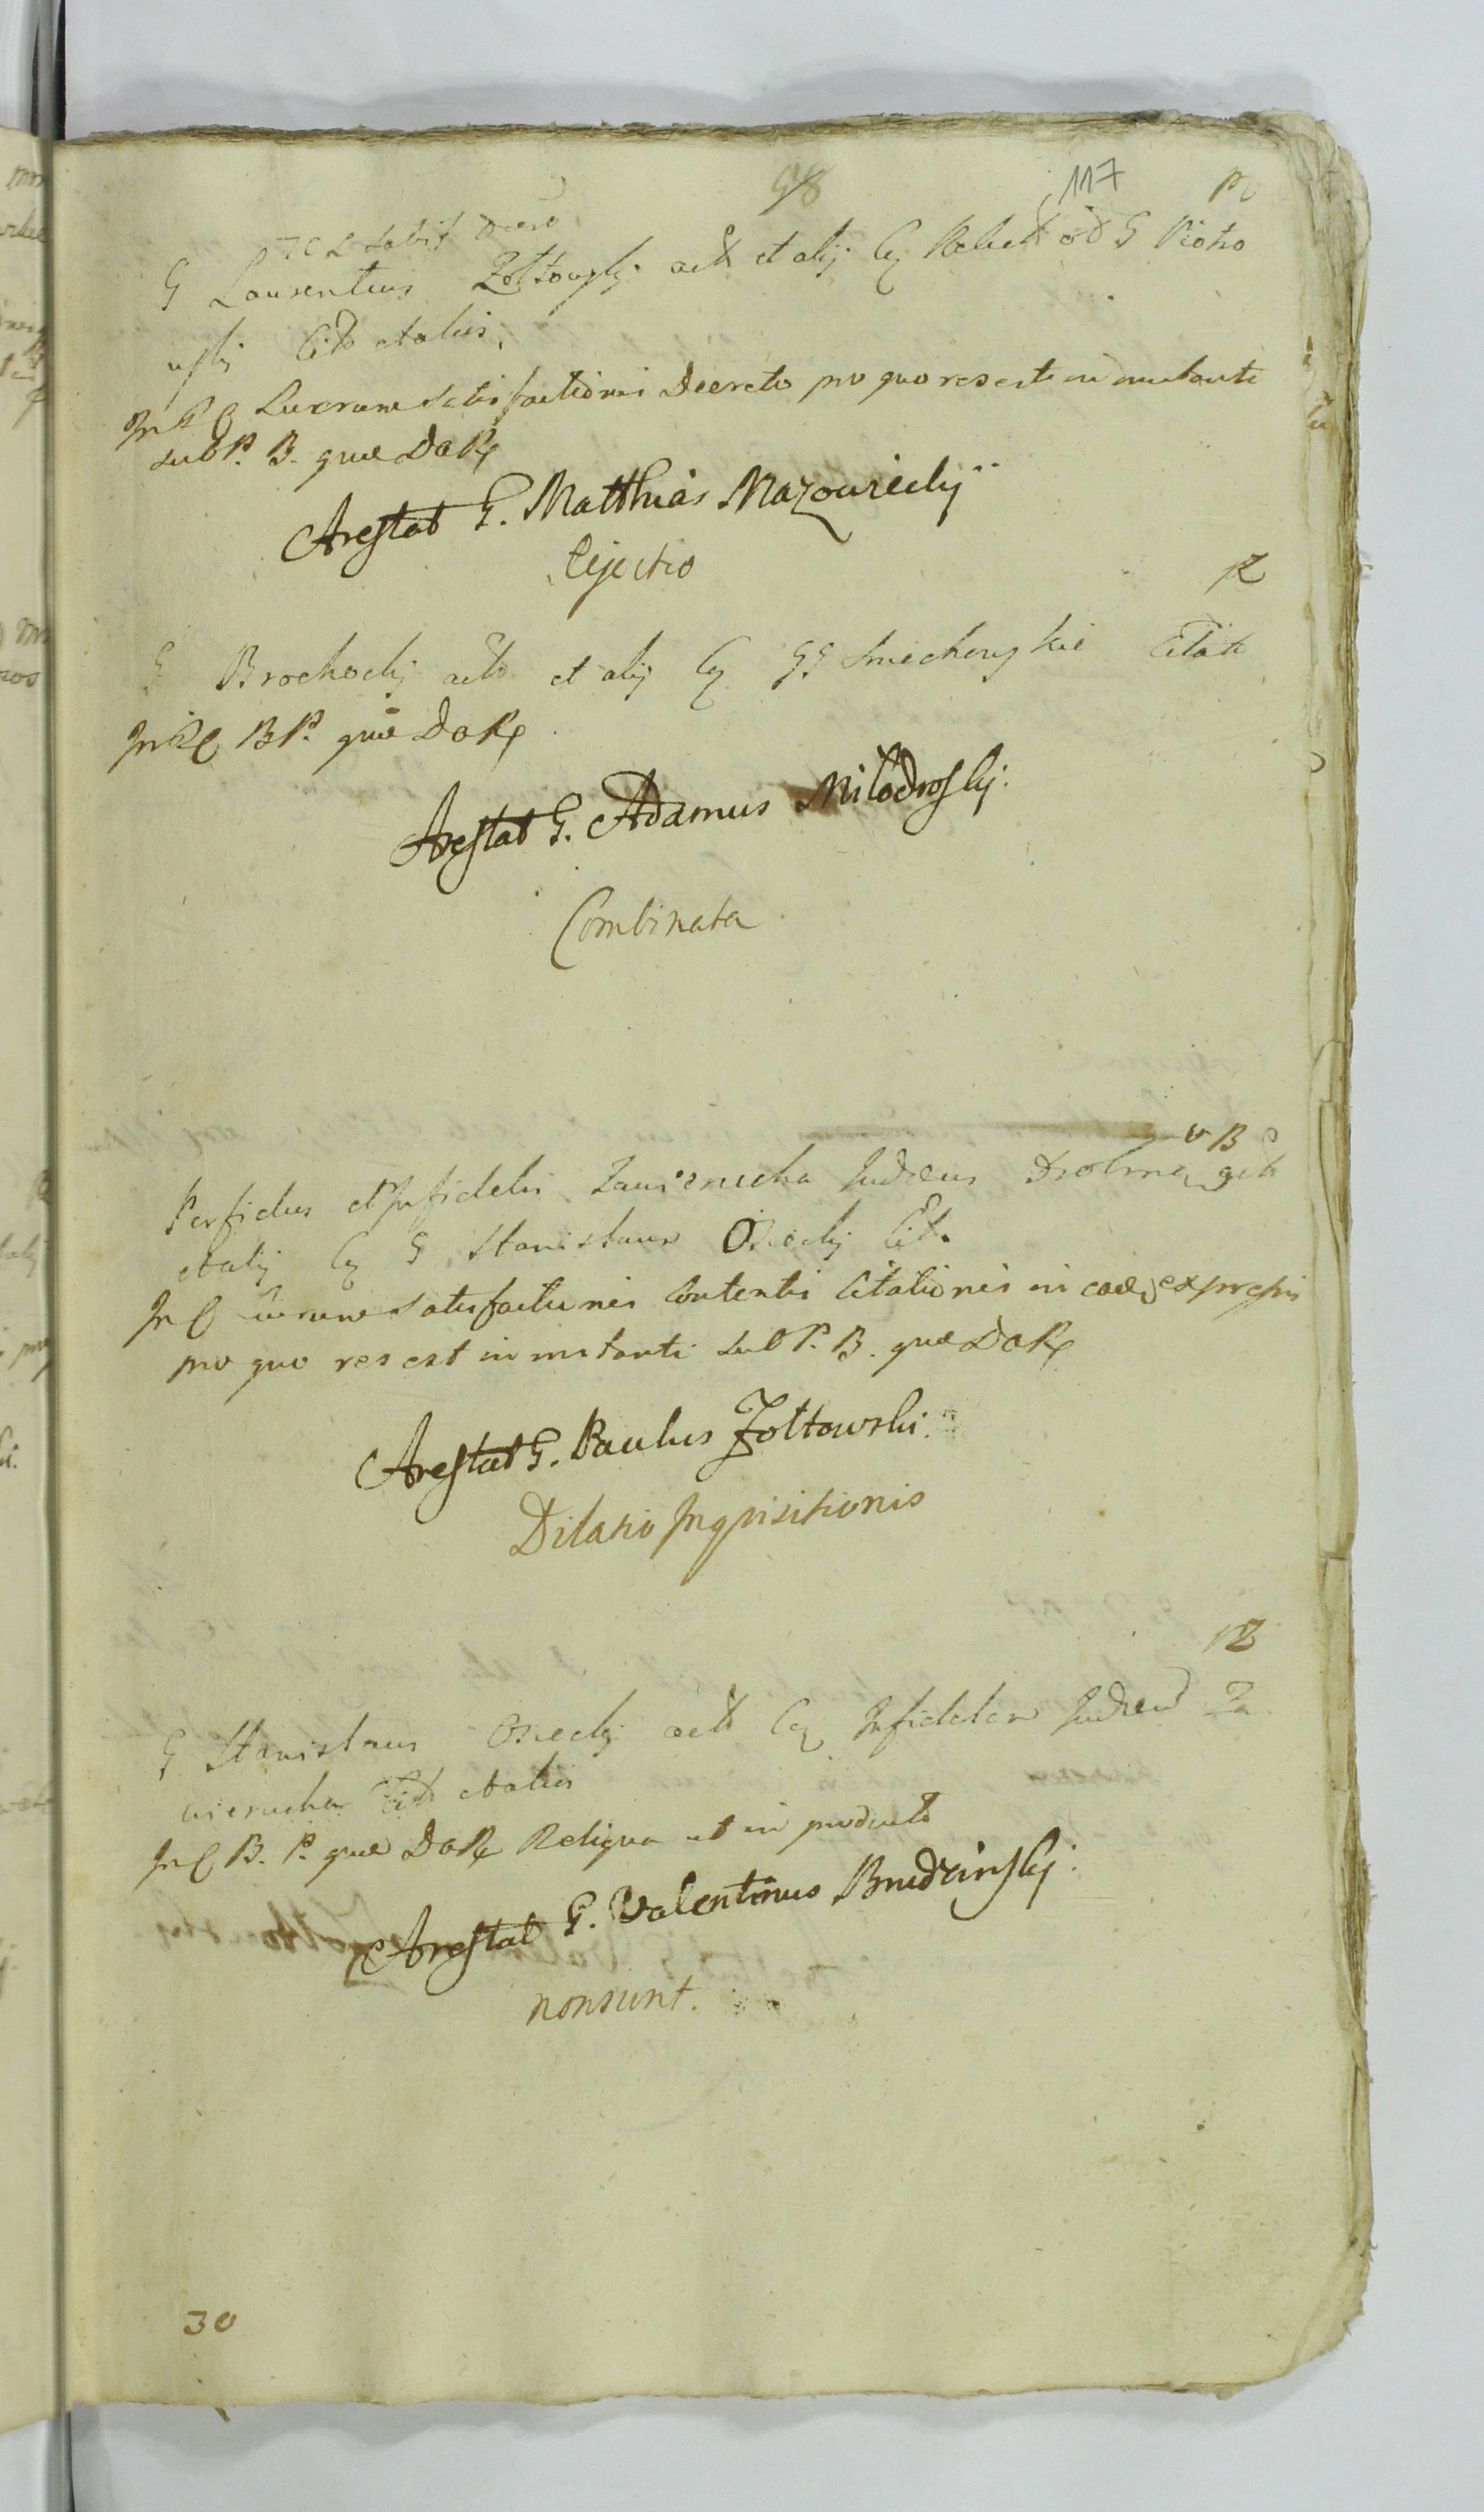 98
117
G Laurentius Zołtowskj actor et alij Cq G Piotro
wskj Citt et alios
satisfactionis Decreto pro quo res est in instanti
sub P. B. quae DaRq
Arestat G. Matthias Mazowieckij
Ejectio
R
G Brochockj actor et alij Cq GG Smiechowskie Citat
B P. quae DaRq
Arestat G. Adamus Miłodroskj.
Combinata
Perfidus et Infidelis Zawierucha Judaeus
et alij Cq G Stanislaum Osieckj Cit.
satisfactionis contentis Citationis in eadem expressis
pro quo res est in instanti sub P. B. quae DaRq
Arestat G. Paulus Zołtowski.
Dilatio Inquisitionis
R
G Stanislaus Osieckj actor Cq Infidelem Judaeum Za
wierucha Citt et alios
B. P. quae DaRq Reliqua ut in producto
Arestat G. Valentinus Brudzinskj.
non sunt.
30